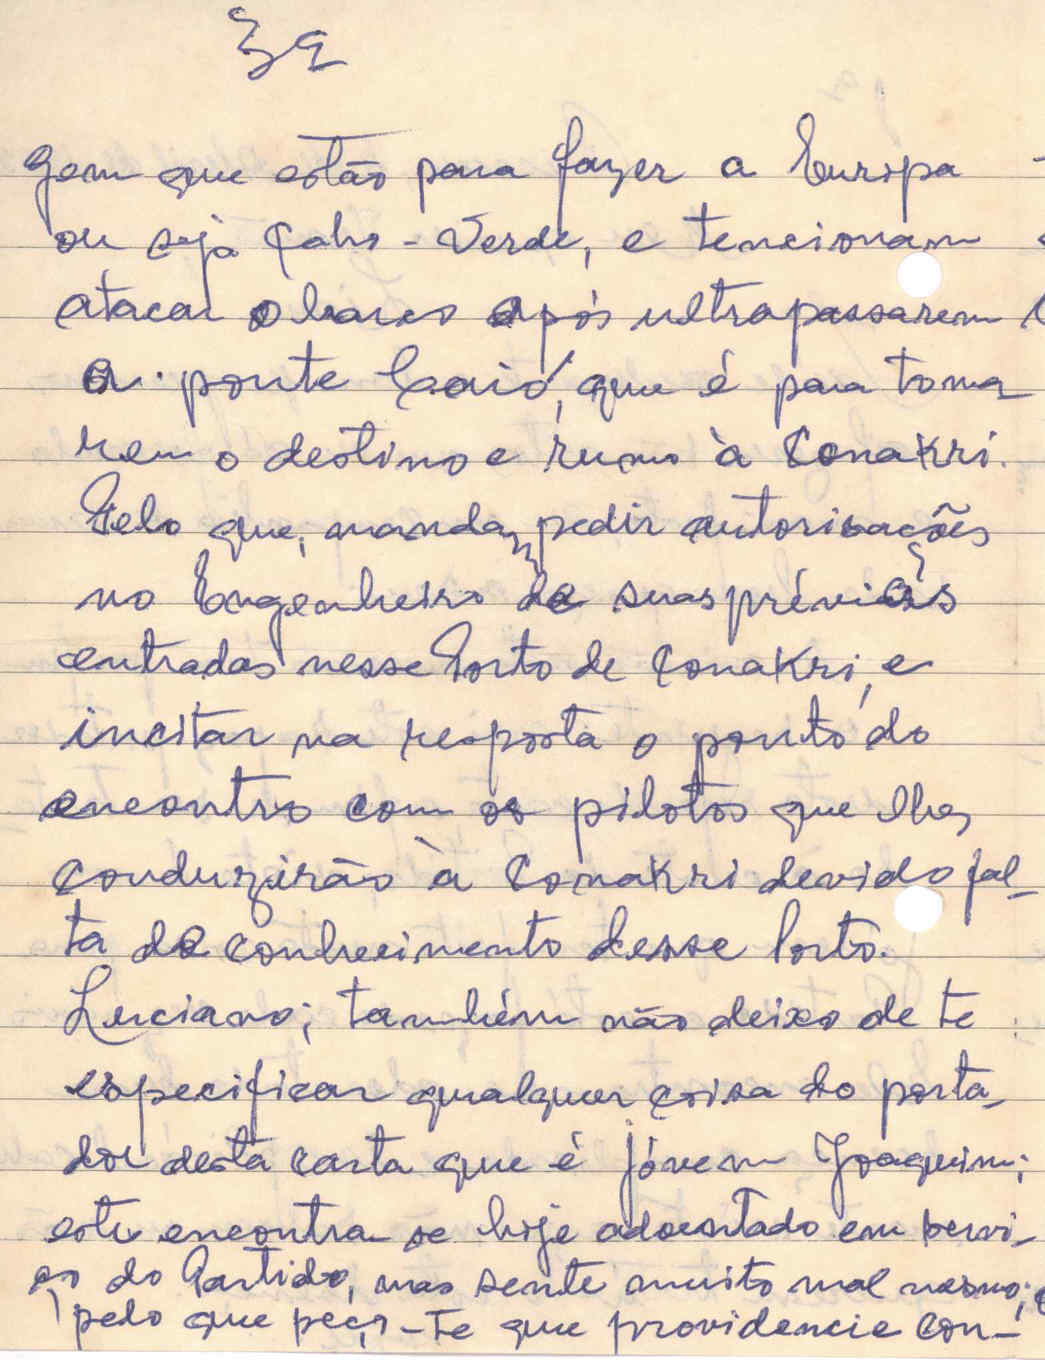 3ª
gem que estão para fazer a Europa
ou seja Cabo-Verde, e tencionam
atacar o barco após ultrapassarem
a ponte Caió, que é para toma
rem o destino e rumo à Conakri.
Pelo que, mandam pedir autorisações
no Engenheiro de suas prévias
entradas nesse Porto de Conakri, e
incitar na resposta o ponto do
encontro com os pilotos que lhes
conduzirão à Conakri devido fal-
ta de conhecimento desse Porto.
Luciano; também não deixo de te
especificar qualquer coisa do porta-
dor desta carta que é jóvem Joaquim;
este encontra se hoje adoentado em servi-
ço do Partido, mas sente muito mal mesmo;
pelo que peço-te que providencie con-